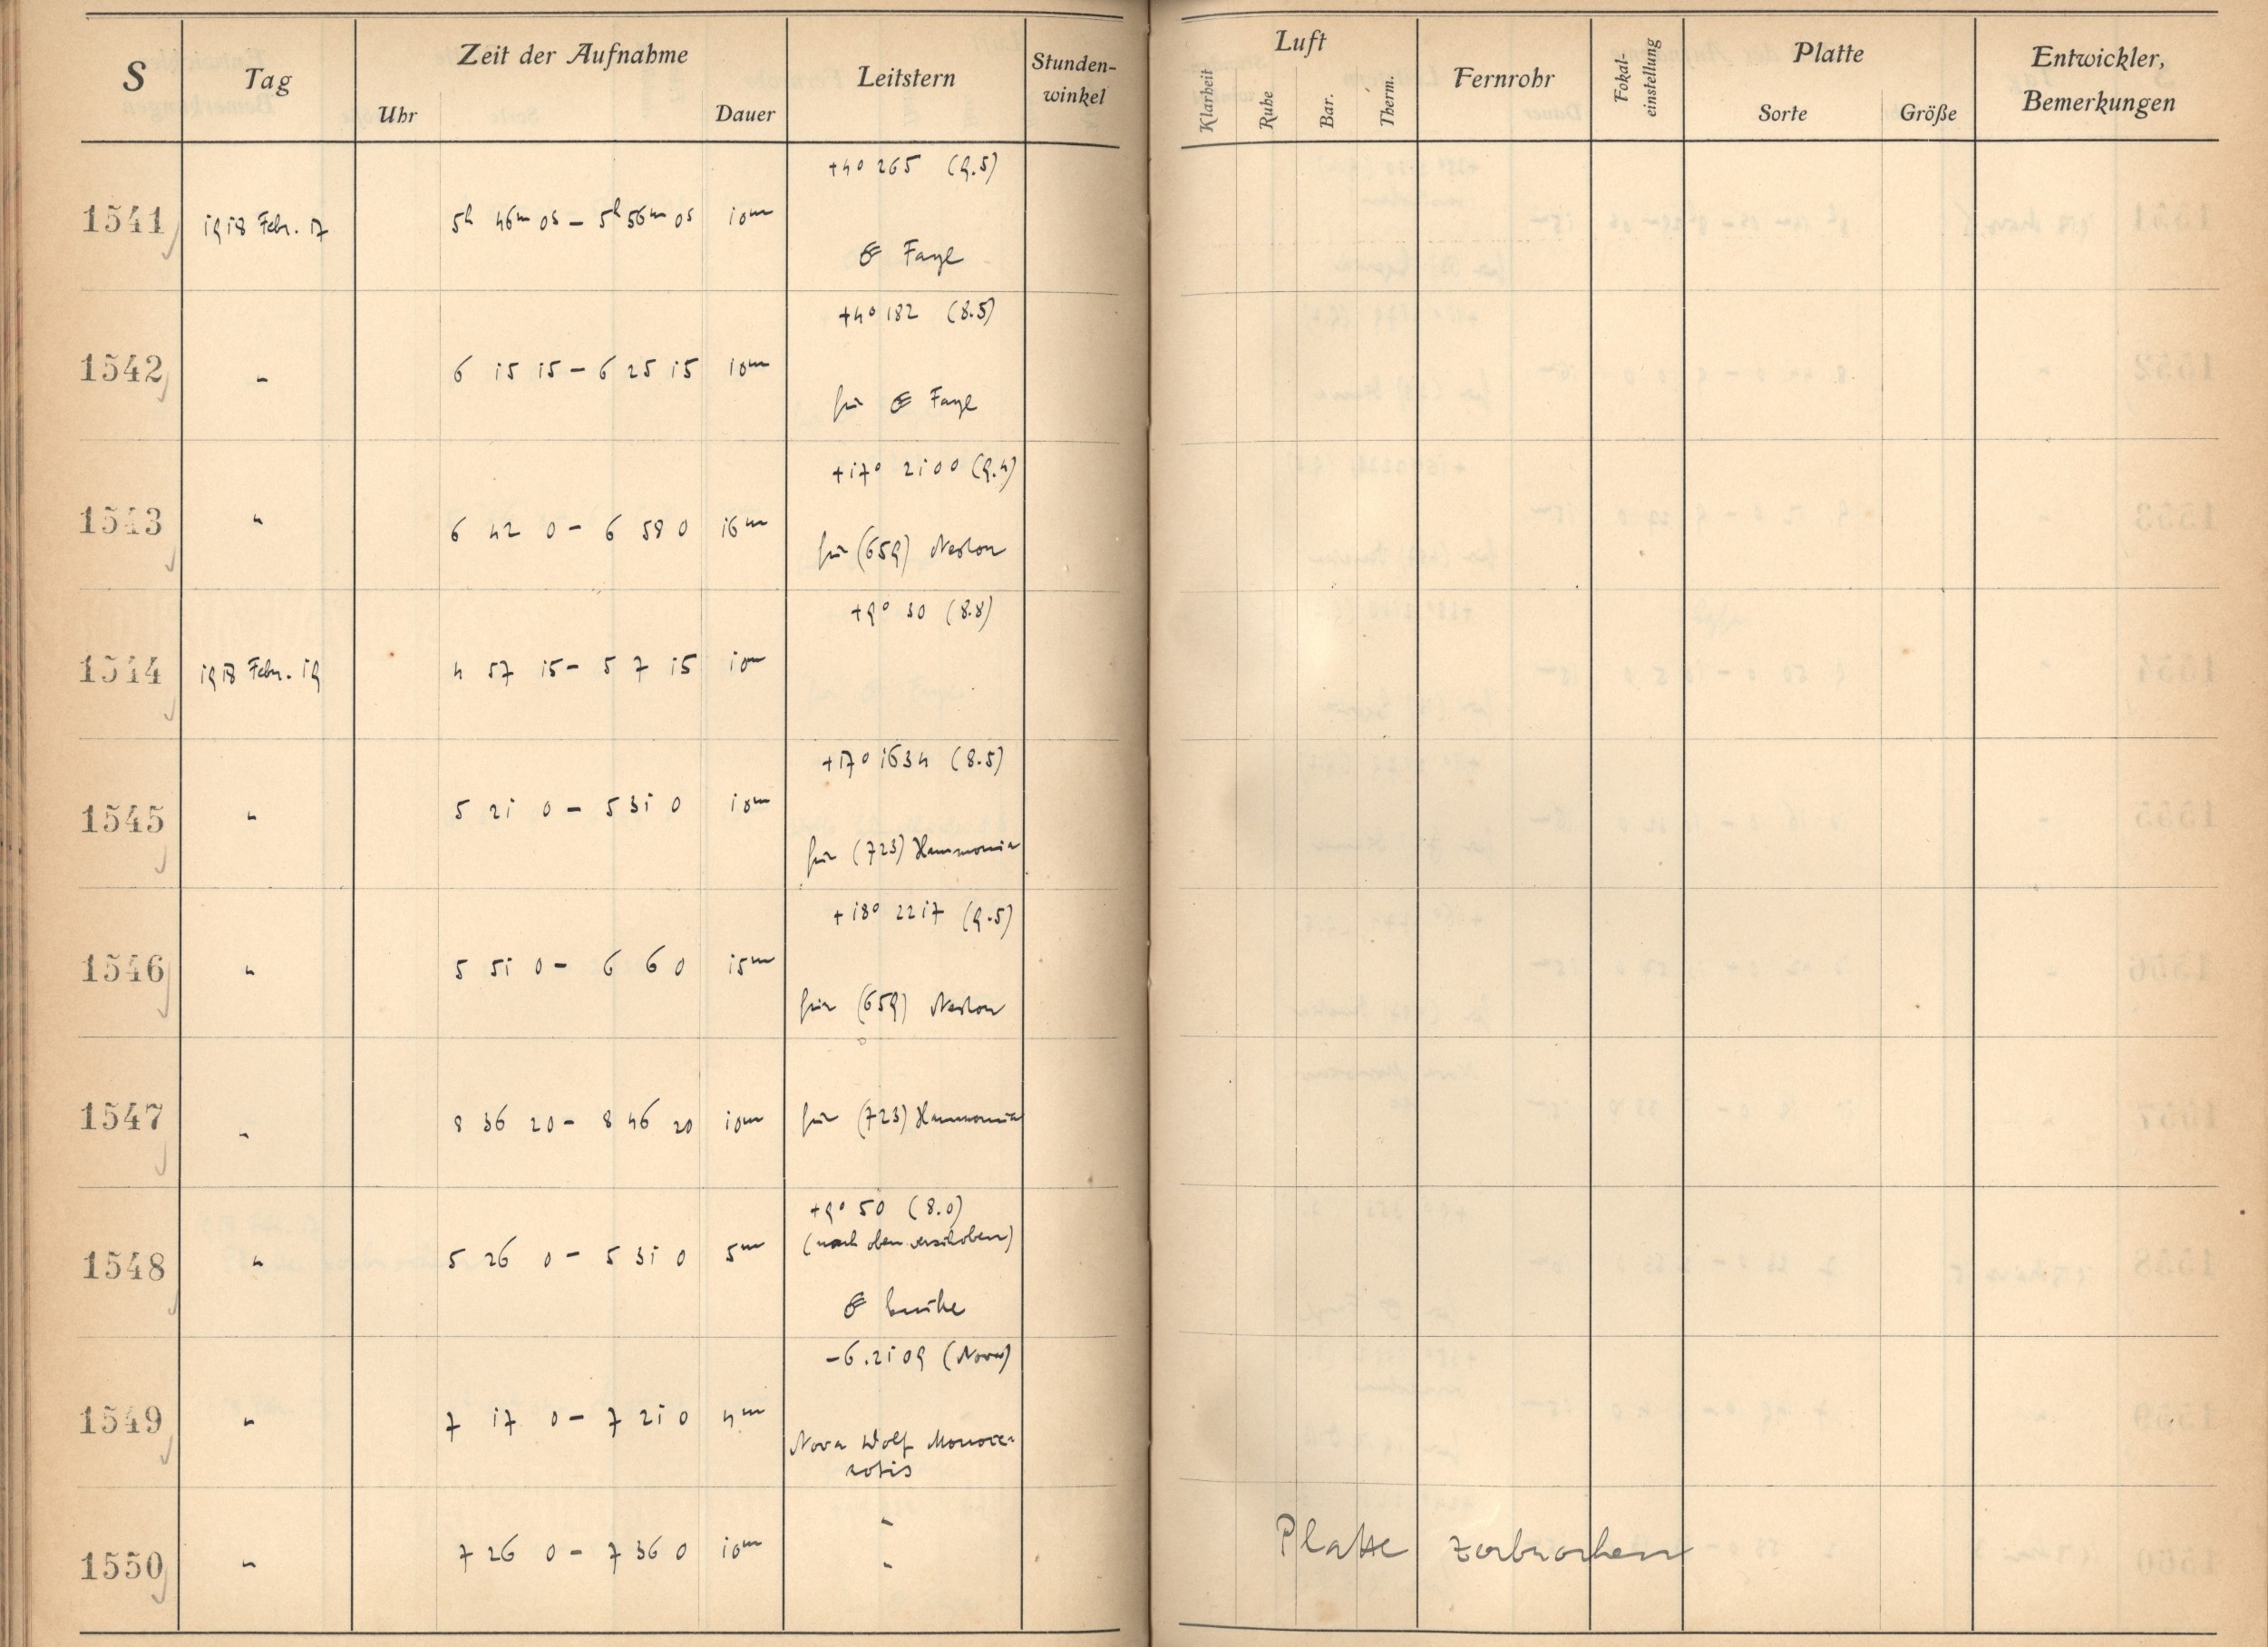 S Tag Zeit der Aufnahme Leitstern Stunden-winkel Luft Fernrohr Fokal-einstellung Platte Entwickler, Bemerkungen
Uhr Dauer Klarheit Ruhe Bar. Therm. Sorte Größe
+4° 265 (9.5)
1541 1918 Febr. 17 5h 46m 0s – 5h 56m 0s 10m
☄ Faye
+4° 182 (8.5)
1542 " 6 15 15 – 6 25 15 10m
für ☄ Faye
+17° 2100 (9.4)
1543 " 6 42 0 – 6 58 0 16m
für (659) Nestor
+9° 30 (8.8)
1544 1918 Febr. 19 4 57 15 – 5 7 15 10m
+17° 1634 (8.5)
1545 " 5 21 0 – 5 31 0 10m
für (723) Hammonia
+18° 2217 (9.5)
1546 " 5 51 0 – 6 6 0 15m
für (659) Nestor
1547 " 8 36 20 – 8 46 20 10m für (723) Hammonia
+9° 50 (8.0)
(nach oben verschoben)
1548 " 5 26 0 – 5 31 0 5m
☄ Encke
-6.2109 (Nova)
1549 " 7 17 0 – 7 21 0 4m
Nova Wolf Monoce-
rotis
"
1550 " 7 26 0 – 7 36 0 10m Platte zerbrochen
"